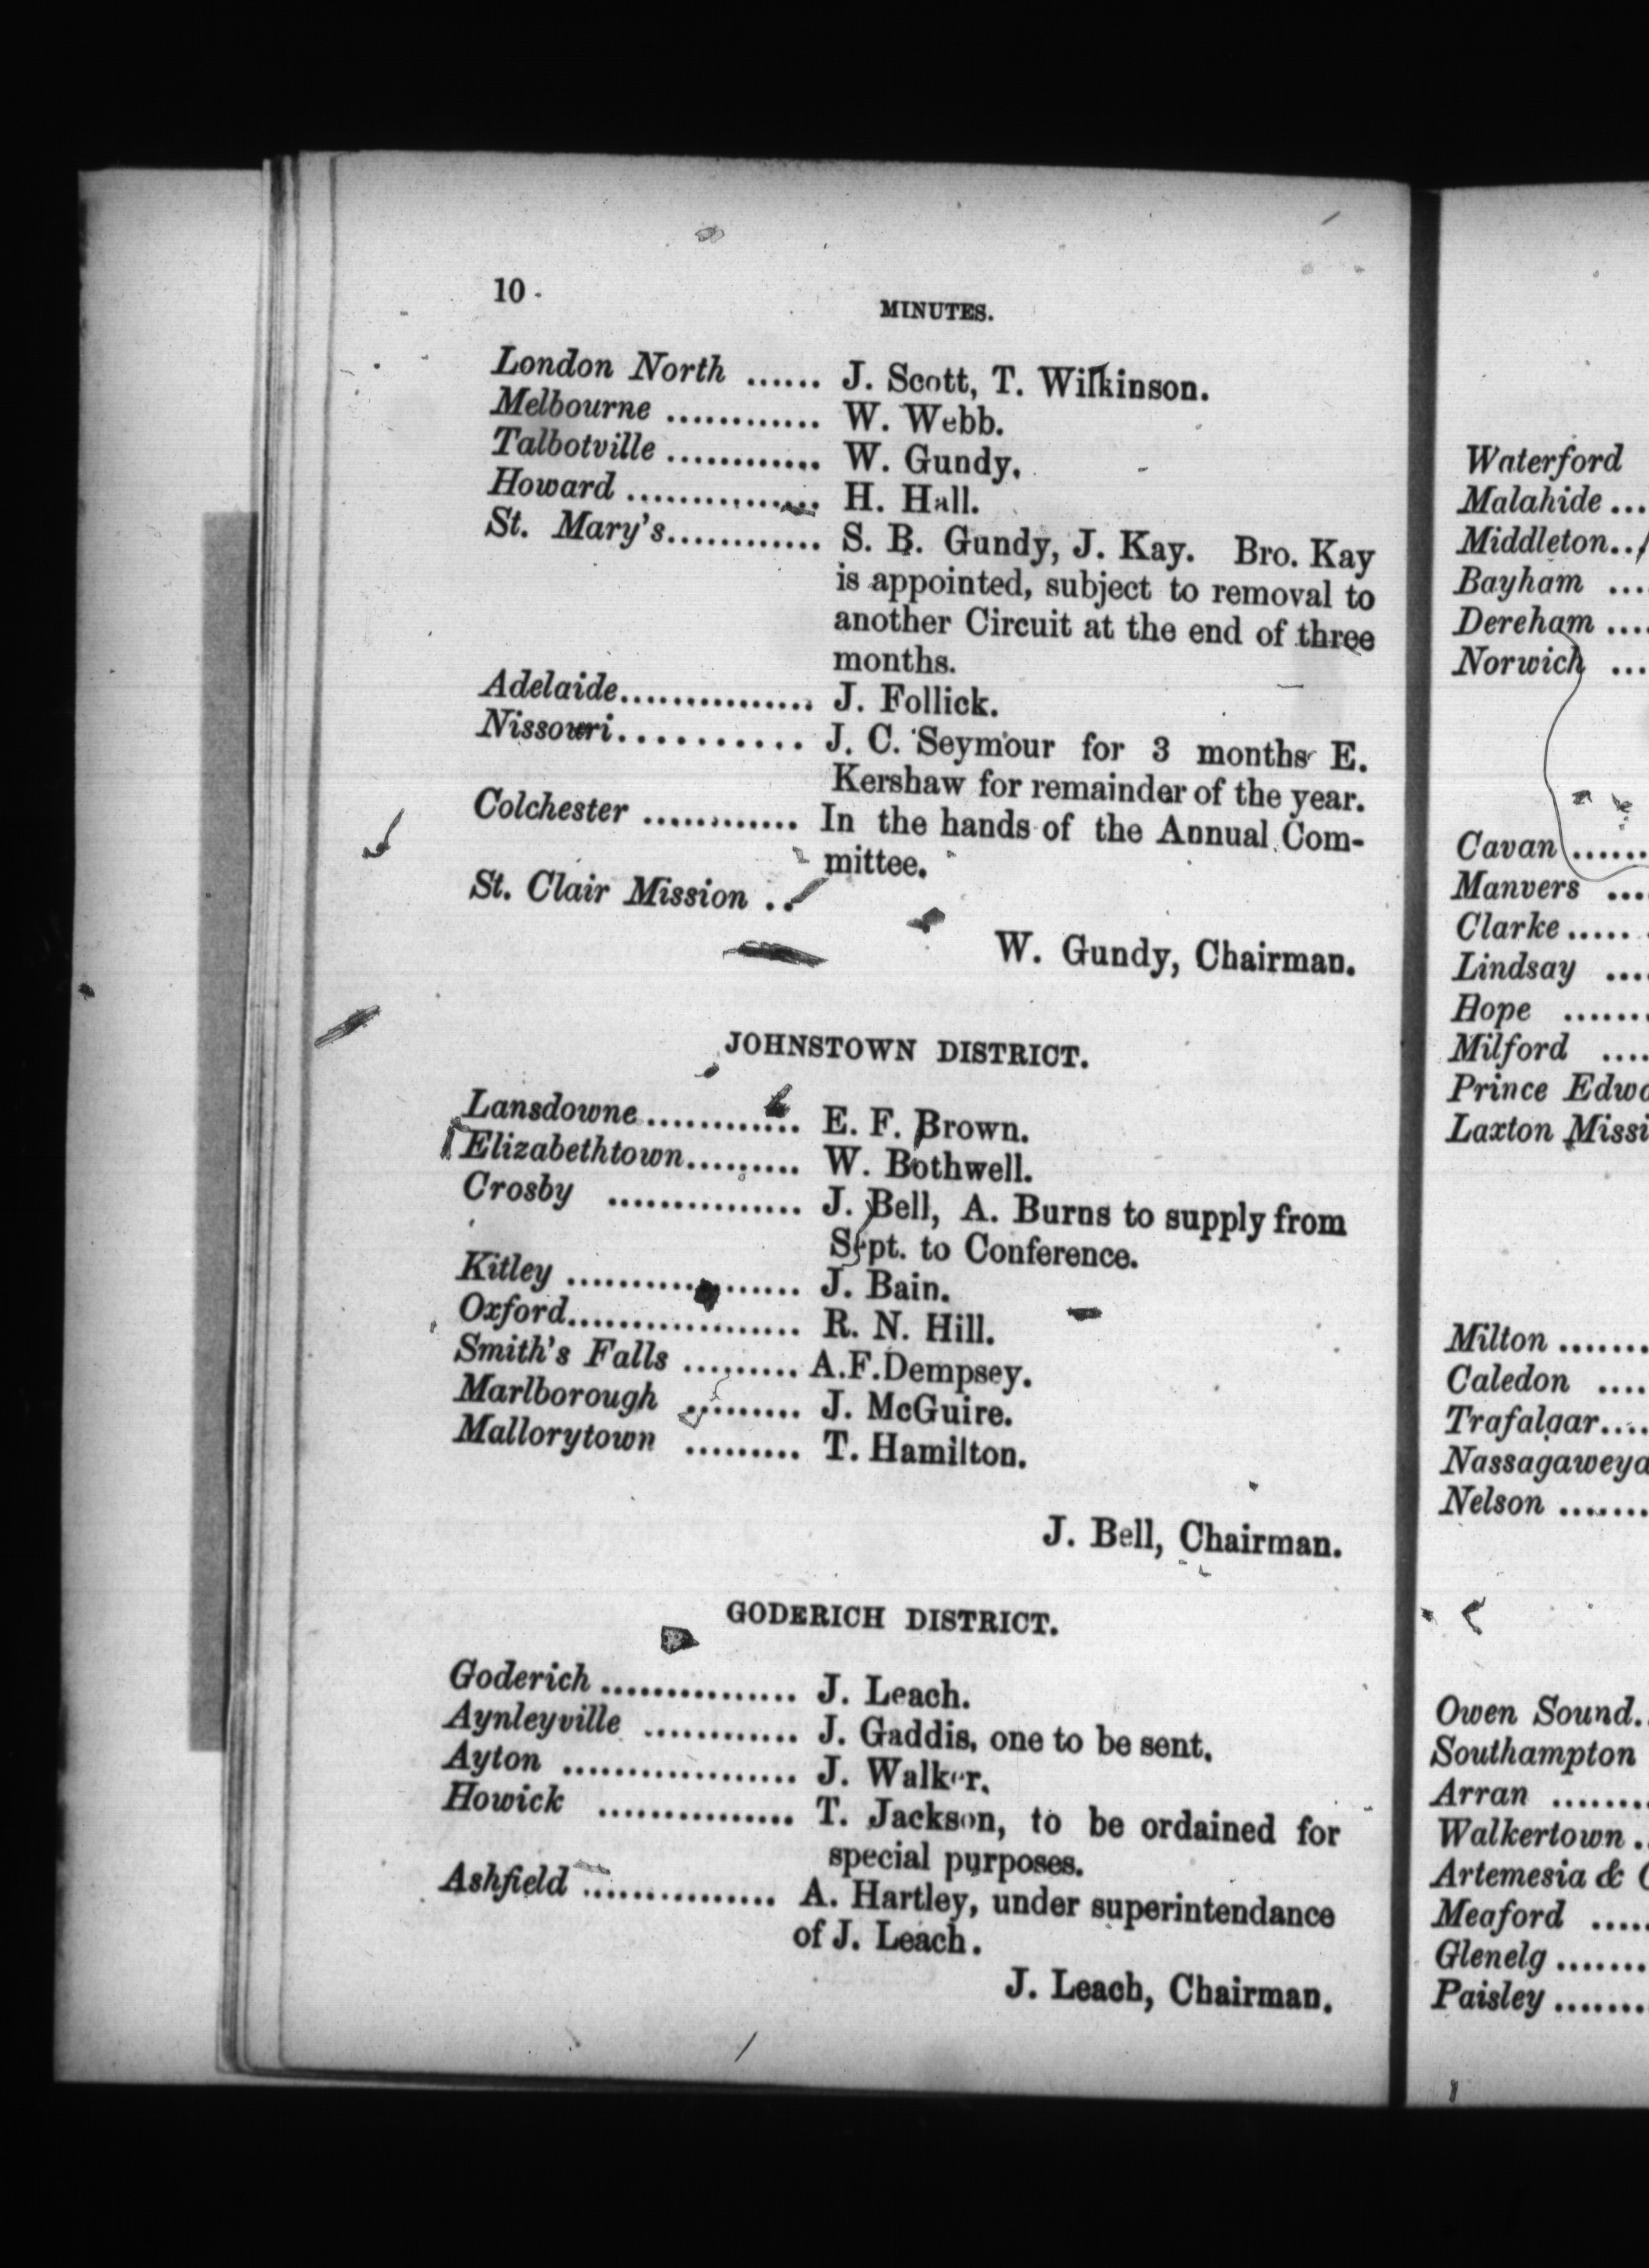 10
MINUTES.
London North ...... J. Scott, T. Wilkinson.
Melbourne ............ W. Webb.
Talbotville ............ W. Gundy.
Howard ............... H. Hall.
St. Mary's............ S. B. Gundy, J. Kay. Bro. Kay
is appointed, subject to removal to
another Circuit at the end of three
months.
Adelaide............... J. Follick.
Nissouri........... J. C. Seymour for 3 months E.
Kershaw for remainder of the year.
Colchester ............ In the hands of the Annual Com-
mittee.
St. Clair Mission ..
W. Gundy, Chairman.
JOHNSTOWN DISTRICT.
Lansdowne............ E. F. Brown.
Elizabethtown......... W. Bothwell.
Crosby ............... J. Bell, A. Burns to supply from
Sept. to Conference.
Kitley .................. J. Bain.
Oxford.................. R. N. Hill.
Smith's Falls ......... A.F.Dempsey.
Marlborough ......... J. McGuire.
Mallorytown ......... T. Hamilton.
J. Bell, Chairman.
GODERICH DISTRICT.
Goderich ............... J. Leach.
Aynleyville ............ J. Gaddis, one to be sent.
Ayton .................. J. Walker.
Howick ............... T. Jackson, to be ordained for
special purposes.
Ashfield ............... A. Hartley, under superintendance
of J. Leach.
J. Leach, Chairman.
Waterford
Malahide ...
Middleton..
Bayham ...
Dereham ....
Norwich ...
Cavan ......
Manvers ...
Clarke .....
Lindsay ...
Hope .......
Milford ....
Prince Edwa
Laxton Missi
Milton .......
Caledon ....
Trafalgar....
Nassagaweya
Nelson .......
Owen Sound.
Southampton
Arran .......
Walkertown .
Artemesia &
Meaford .....
Glenelg .......
Paisley .......